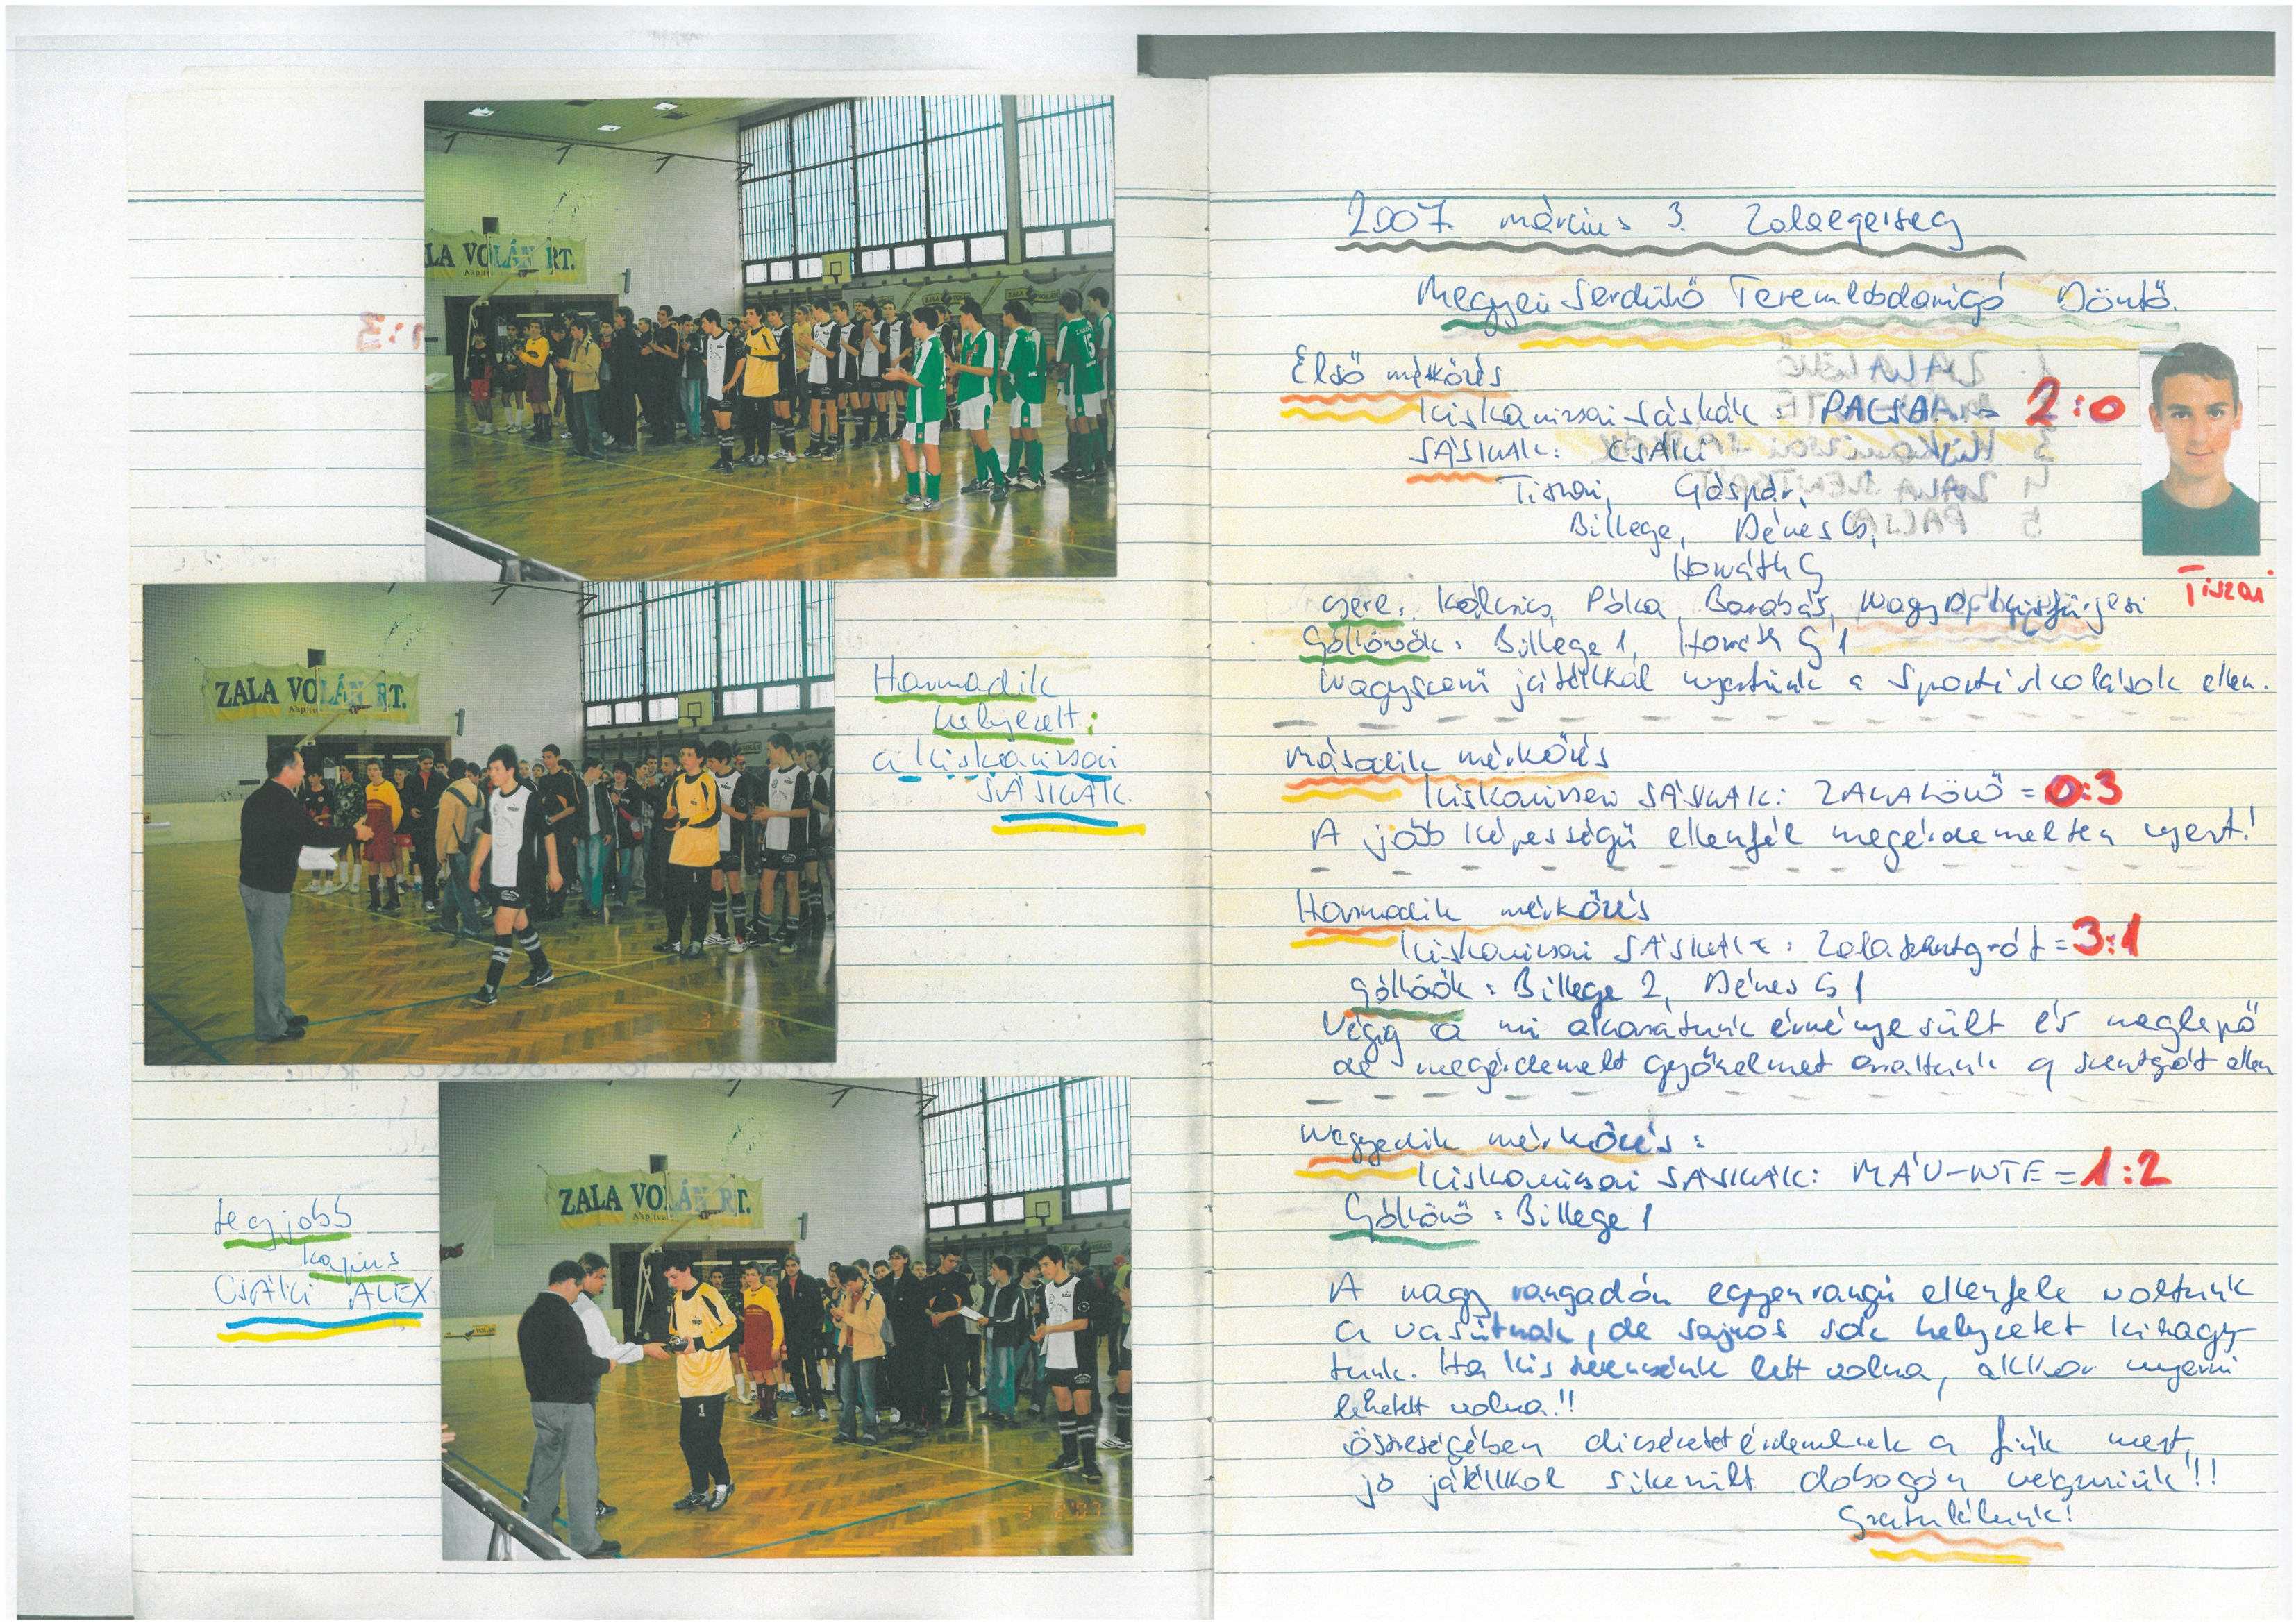 LA VOLÁN RT.
ZALA VOLÁN RT.
Harmadik
helyezett:
a Kiskanizsai
SÁSKÁK.
ZALA VOLÁN RT.
Legjobb
kapus
CSÁKI ALEX
2007. március 3. Zalaegerszeg
Megyei Serdülő Teremlabdarúgó Döntő.
Első mérkőzés
Kiskanizsai Sáskák : PACSA = 2:0
SÁSKÁK: CSÁKI
Tiszai, Gáspár,
Billege, Dénes G,
Horváth G
csere: Kálcsics, Póka, Barabás, Nagy D,
Góllövők: Billege 1, Horváth G 1
Nagyszerű játékkal nyertünk a Sportiskolások ellen.
Tiszai
Második mérkőzés
Kiskanizsai SÁSKÁK: ZALALÖVŐ = 0:3
A jobb képességű ellenfél megérdemelten nyert!
Harmadik mérkőzés
Kiskanizsai SÁSKÁK : Zalaszentgrót = 3:1
Góllövők : Billege 2, Dénes G 1
Végig a mi akaratunk érvényesült és meglepő
de megérdemelt győzelmet arattunk a szentgrót ellen
Negyedik mérkőzés :
Kiskanizsai SÁSKÁK: MÁV-NTE = 1:2
Góllövő : Billege 1
A nagy rangadón egyenrangú ellenfele voltunk
a vasútnak, de sajnos sok helyzetet kihagy-
tunk. Ha kis szerencsénk lett volna, akkor nyerni
lehetett volna!!
Összeségében dicséretet érdemelnek a fiúk mert
jó játékkal sikerült dobogón végezniük!!
Gratulálunk!